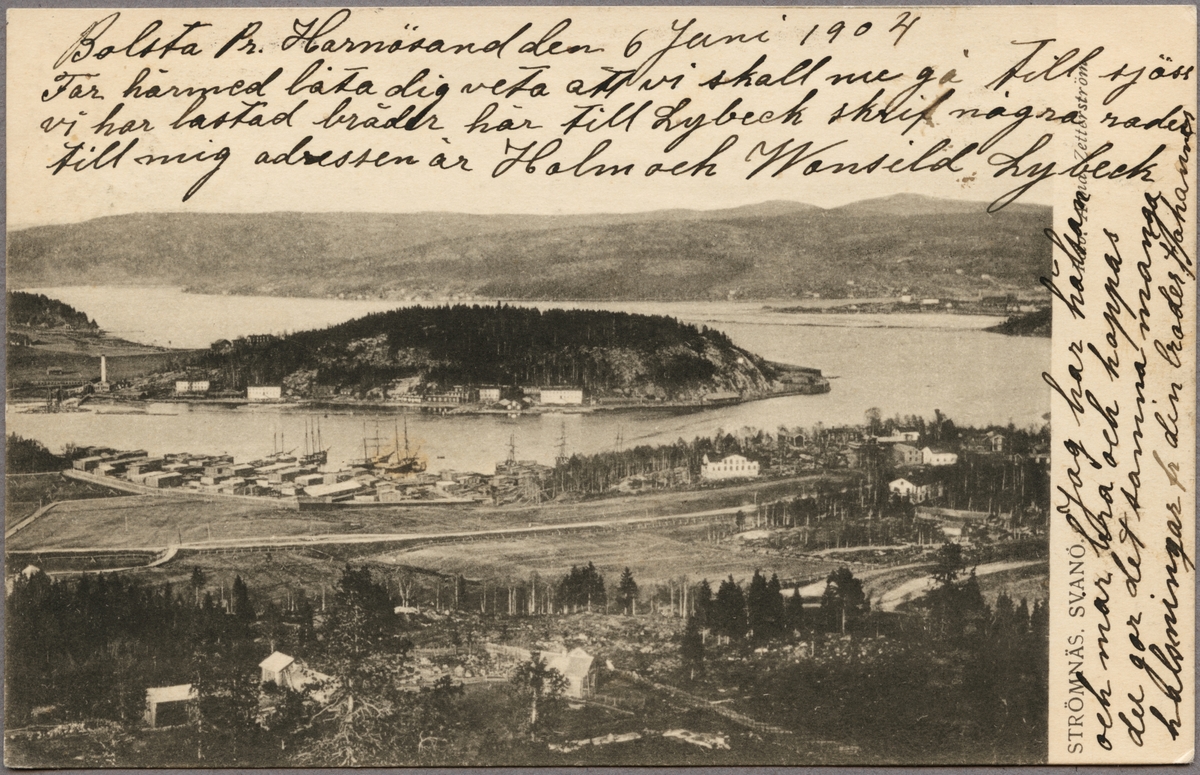 Bolsta Pr. Harnösand den 6 Juni 1904
Får härmed låta dig veta att vi skall nu gå till sjöss
vi har lastad bräder här till Lybeck skrif några rader
till mig adressen är Holm och Wonsild Lybeck
Jag har hälsan
och mår bra och hoppas
du gör det samma många
hälsningar fr din broder Johannes
STRÖMNÄS. SVANÖ
Zetterström